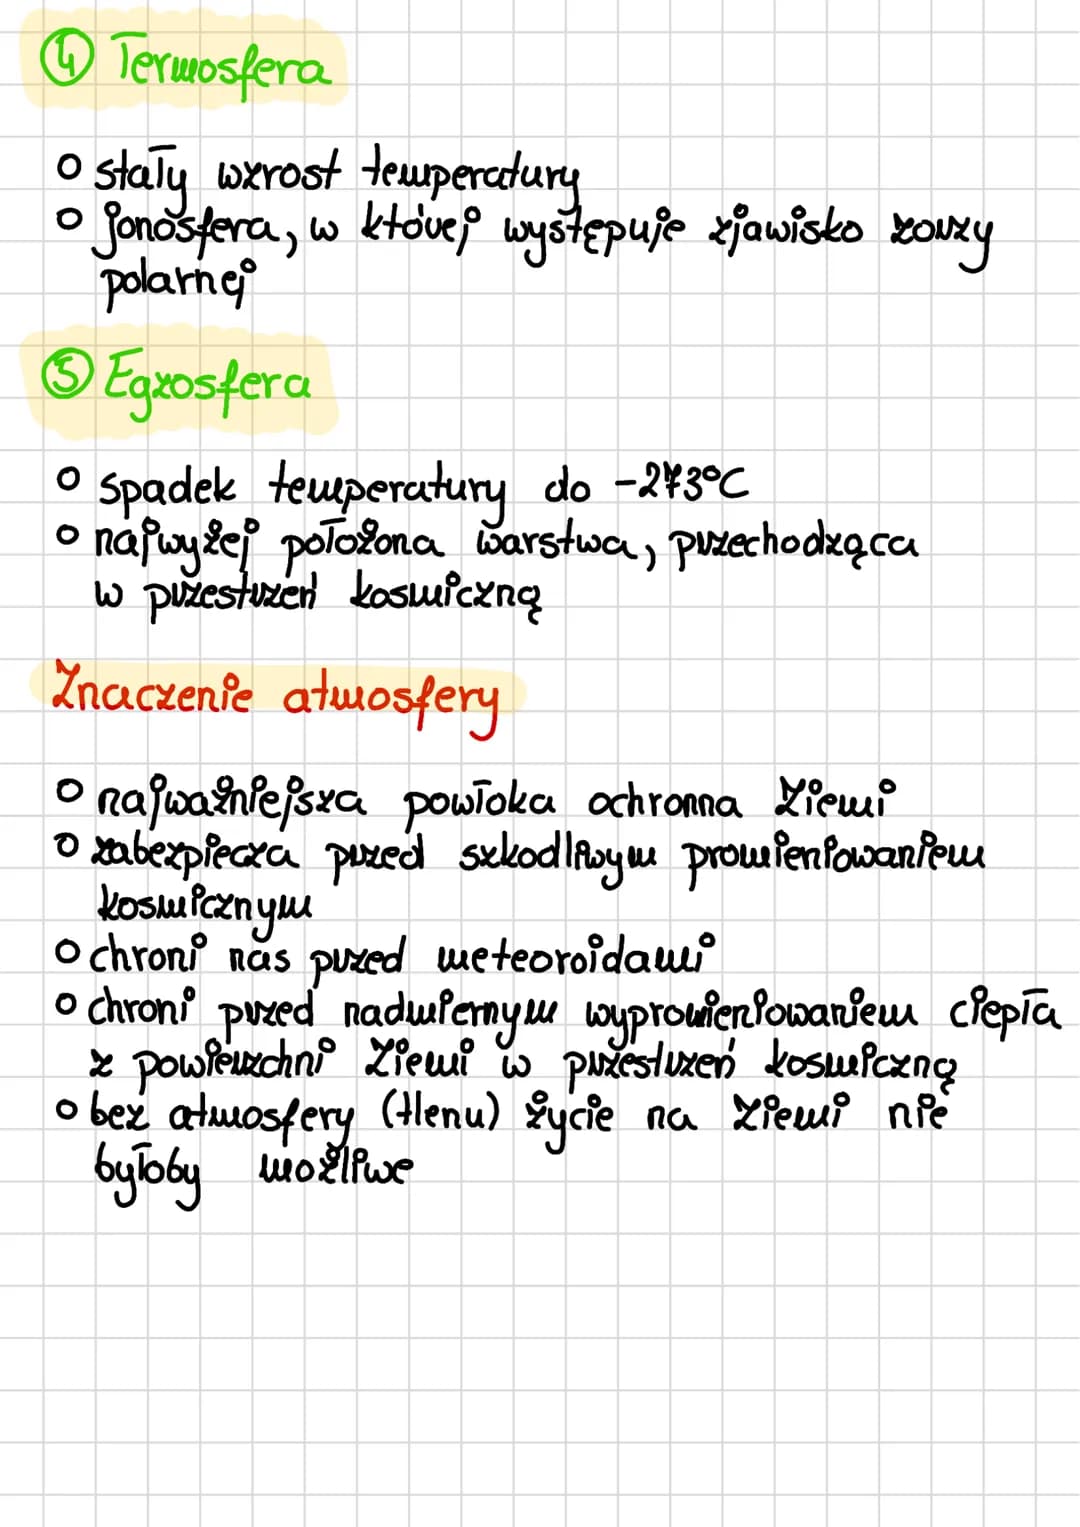 ④ Termosfera
o stały wzrost temperatury
o jonosfera, w której występuje zjawisko zorzy
polarnej
⑤ Egzosfera
o spadek temperatury do -273°C
o najwyżej położona warstwa, przechodząca
w przestrzeń kosmiczną
Znaczenie atmosfery
o najważniejsza powłoka ochronna Ziemi
o zabezpiecza przed szkodliwym promieniowaniem
kosmicznym
o chroni nas przed meteoroidami
o chroni przed nadmiernym wypromieniowaniem ciepła
z powierzchni Ziemi w przestrzeń kosmiczną
o bez atmosfery (tlenu) życie na Ziemi nie
byłoby możliwe